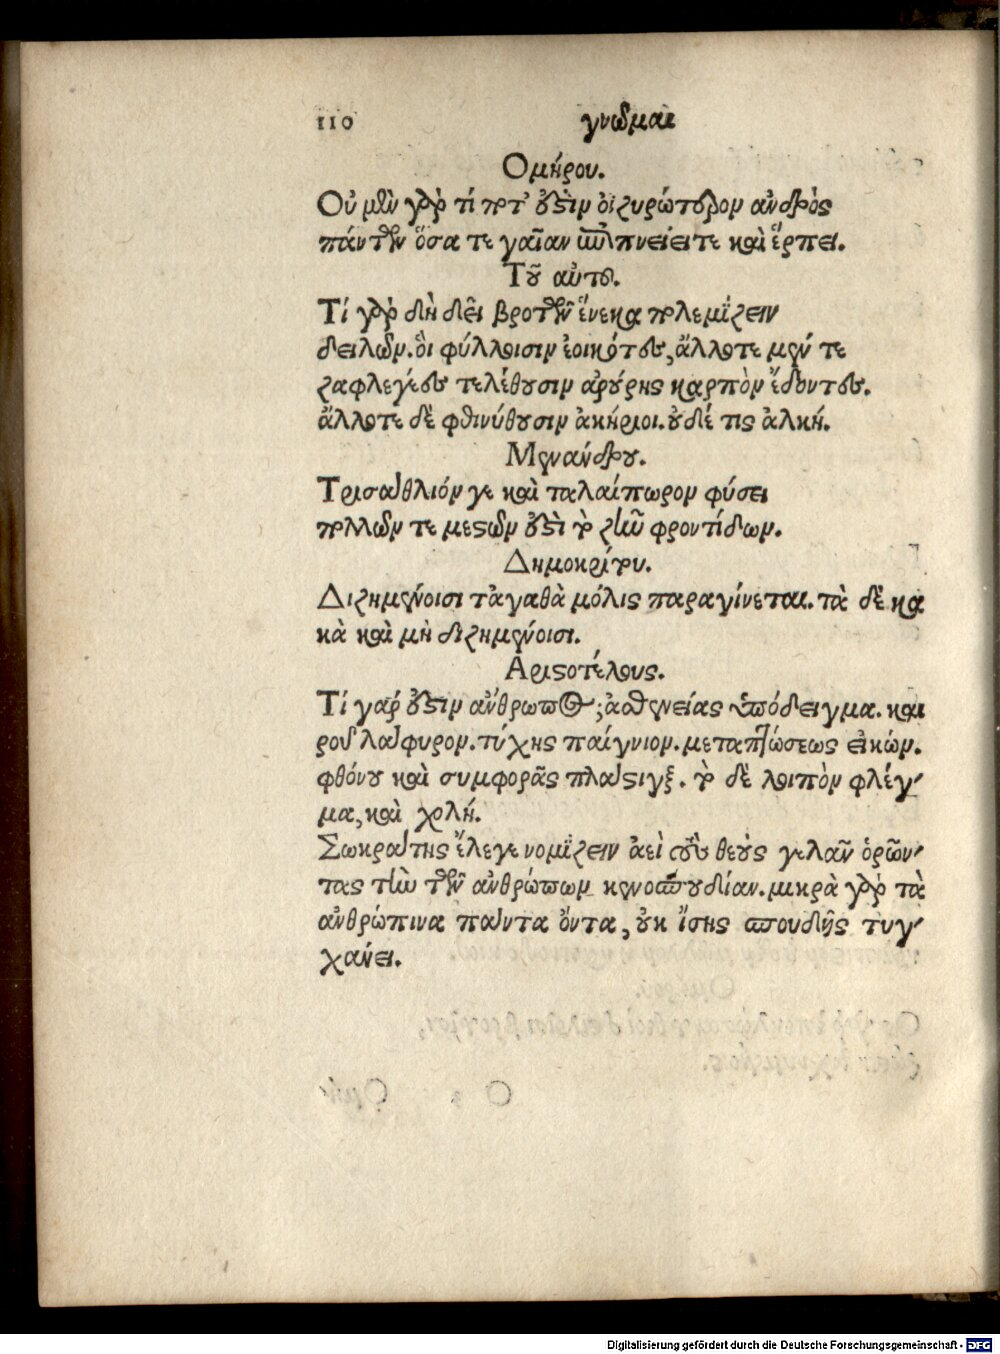 110 γνῶμαι
Ομήρου.
Οὐ μὲν γὰρ τί ποτ' ὅστιν ὀϊζυρώτερον ἀνδρὸς
πάντων ὅσα τε γαῖαν ἐπιπνείει τε καὶ ἕρπει.
Τοῦ αὐτοῦ.
Τί γὰρ δὴ δεῖ βροτῶν ἕνεκα πολεμίζειν
δειλῶν. οἳ φύλλοισιν ἐοικότες, ἄλλοτε μέν τε
ζαφλεγέες τελέθουσιν ἀρούρης καρπὸν ἔδοντες.
ἄλλοτε δὲ φθινύθουσιν ἀκήριοι. οὐδέ τις ἀλκή.
Μενάνδρου.
Τρισάθλιόν γε καὶ ταλαίπωρον φύσει
πολλῶν τε μεστὸν ὅστὶ τὸ ζῆν φροντίδων.
Δημοκρίτου.
Διζημένοισι τἀγαθὰ μόλις παραγίνεται. τὰ δὲ κα
κὰ καὶ μὴ διζημένοισι.
Αριστοτέλους.
Τί γάρ ὅστιν ἄνθρωπος; ἀσθενείας ὑπόδειγμα. και
ροῦ λάφυρον. τύχης παίγνιον. μεταπτώσεως εἰκών.
φθόνου καὶ συμφορᾶς πλάστιγξ. τὸ δὲ λοιπὸν φλέγ-
μα, καὶ χολή.
Σωκράτης ἔλεγε νομίζειν ἀεὶ τοὺς θεοὺς γελᾶν ὁρῶν-
τας τὴν τῶν ἀνθρώπων κενοσπουδίαν. μικρὰ γὰρ τὰ
ἀνθρώπινα πάντα ὄντα, οὐκ ἴσης σπουδῆς τυγ-
χάνει.
Digitalisierung gefördert durch die Deutsche Forschungsgemeinschaft - DFG